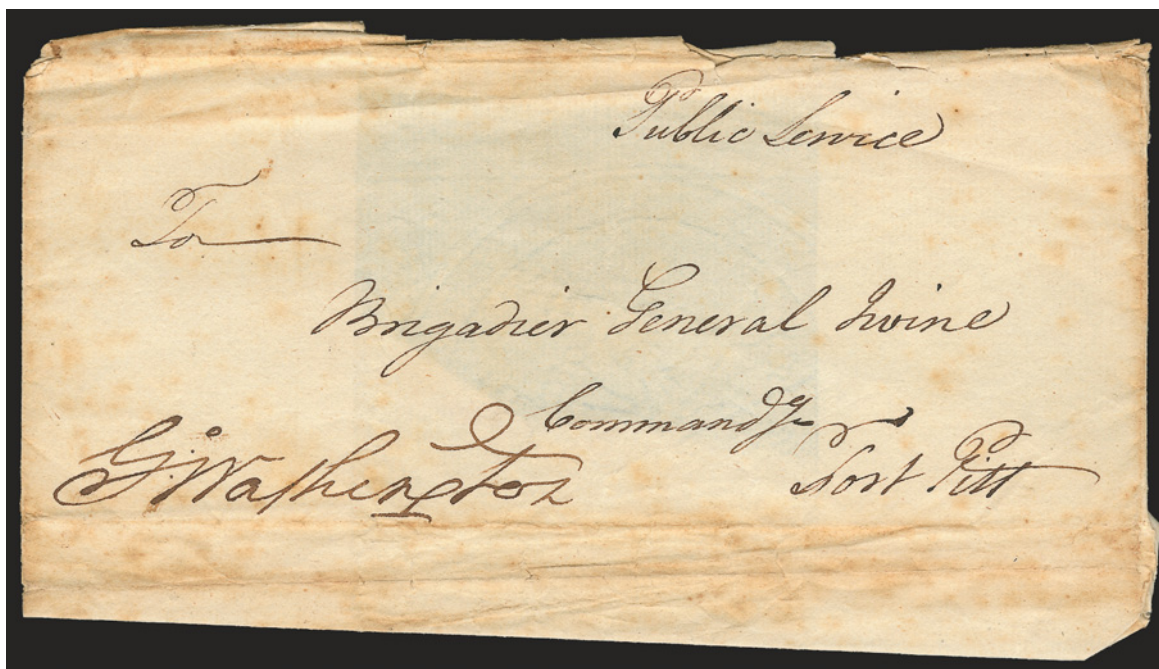 Public Service
To
Brigadier General Irvine
Command.g
Fort Pitt
G:Washington